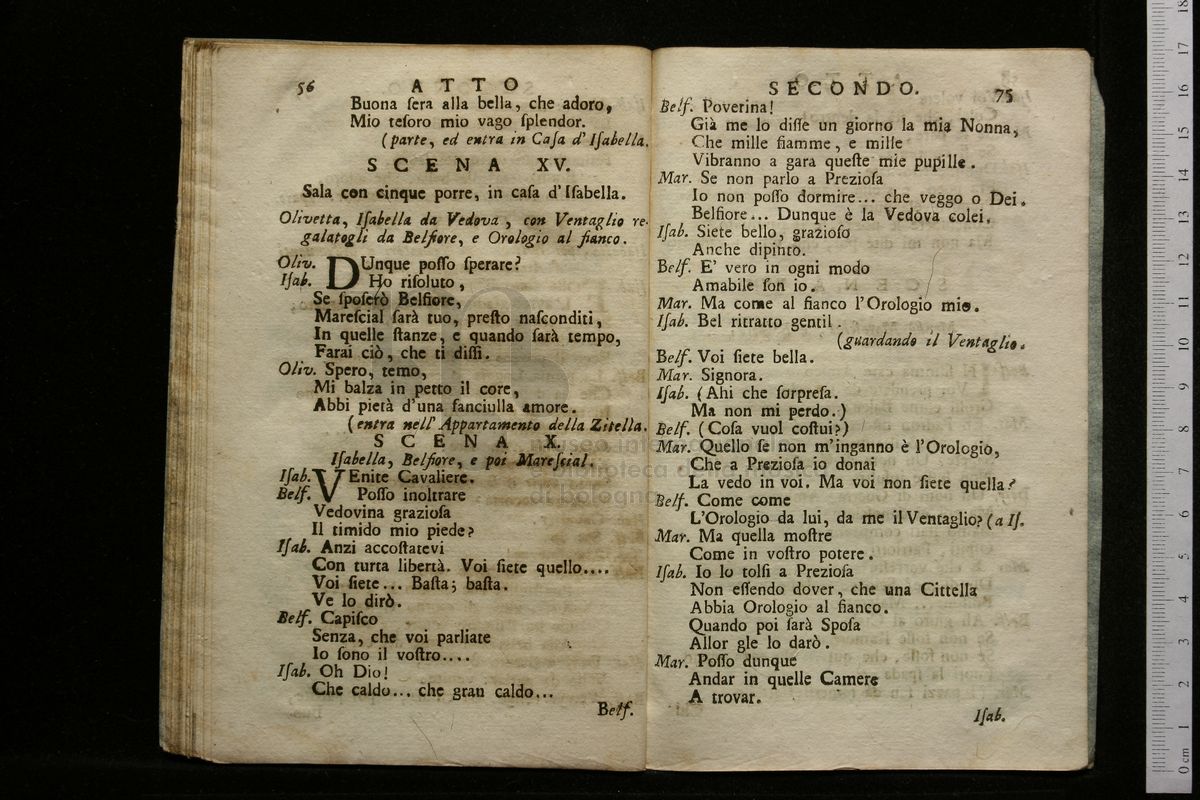 56
ATTO
Buona ſera alla bella, che adoro,
Mio teſoro mio vago ſplendor.
(parte, ed entra in Caſa d'Iſabella.
SCENA XV.
Sala con cinque porre, in caſa d'Iſabella.
Olivetta, Iſabella da Vedova, con Ventaglio re-
galatogli da Belfiore, e Orologio al fianco.
Oliv. DUnque poſſo ſperare?
Iſab. Ho riſoluto,
Se ſpoſerò Belfiore,
Mareſcial ſarà tuo, preſto naſconditi,
In quelle ſtanze, e quando ſarà tempo,
Farai ciò, che ti diſſi.
Oliv. Spero, temo,
Mi balza in petto il core,
Abbi pietà d'una fanciulla amore.
(entra nell'Appartamento della Zitella.
SCENA X.
Iſabella, Belfiore, e poi Mareſcial.
Iſab. VEnite Cavaliere.
Belf. Poſſo inoltrare
Vedovina grazioſa
Il timido mio piede?
Iſab. Anzi accoſtatevi
Con turta libertà. Voi ſiete quello....
Voi ſiete... Baſta; baſta.
Ve lo dirò.
Belf. Capiſco
Senza, che voi parliate
Io ſono il voſtro....
Iſab. Oh Dio!
Che caldo... che gran caldo...
Belf.
SECONDO.
75
Belf. Poverina!
Già me lo diſſe un giorno la mia Nonna,
Che mille fiamme, e mille
Vibranno a gara queſte mie pupille.
Mar. Se non parlo a Prezioſa
Io non poſſo dormire... che veggo o Dei.
Belfiore... Dunque è la Vedova colei.
Iſab. Siete bello, grazioſo
Anche dipinto.
Belf. E' vero in ogni modo
Amabile ſon io.
Mar. Ma come al fianco l'Orologio mio.
Iſab. Bel ritratto gentil.
(guardando il Ventaglio.
Belf. Voi ſiete bella.
Mar. Signora.
Iſab. (Ahi che ſorpreſa.
Ma non mi perdo.)
Belf. (Coſa vuol coſtui?)
Mar. Quello ſe non m'inganno è l'Orologio,
Che a Prezioſa io donai
La vedo in voi. Ma voi non ſiete quella?
Belf. Come come
L'Orologio da lui, da me il Ventaglio? (a Iſ.
Mar. Ma quella moſtre
Come in voſtro potere.
Iſab. Io lo tolſi a Prezioſa
Non eſſendo dover, che una Cittella
Abbia Orologio al fianco.
Quando poi ſarà Spoſa
Allor gle lo darò.
Mar. Poſſo dunque
Andar in quelle Camere
A trovar.
Iſab.